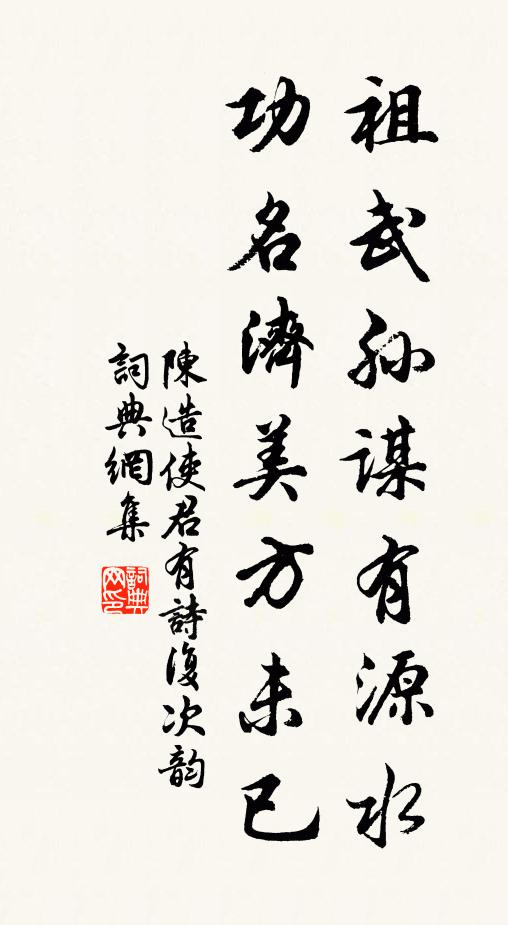 祖武孫謀有源水
功名濟美方未已
陳造使君有詩復次韵
詞典網集
詞典網印